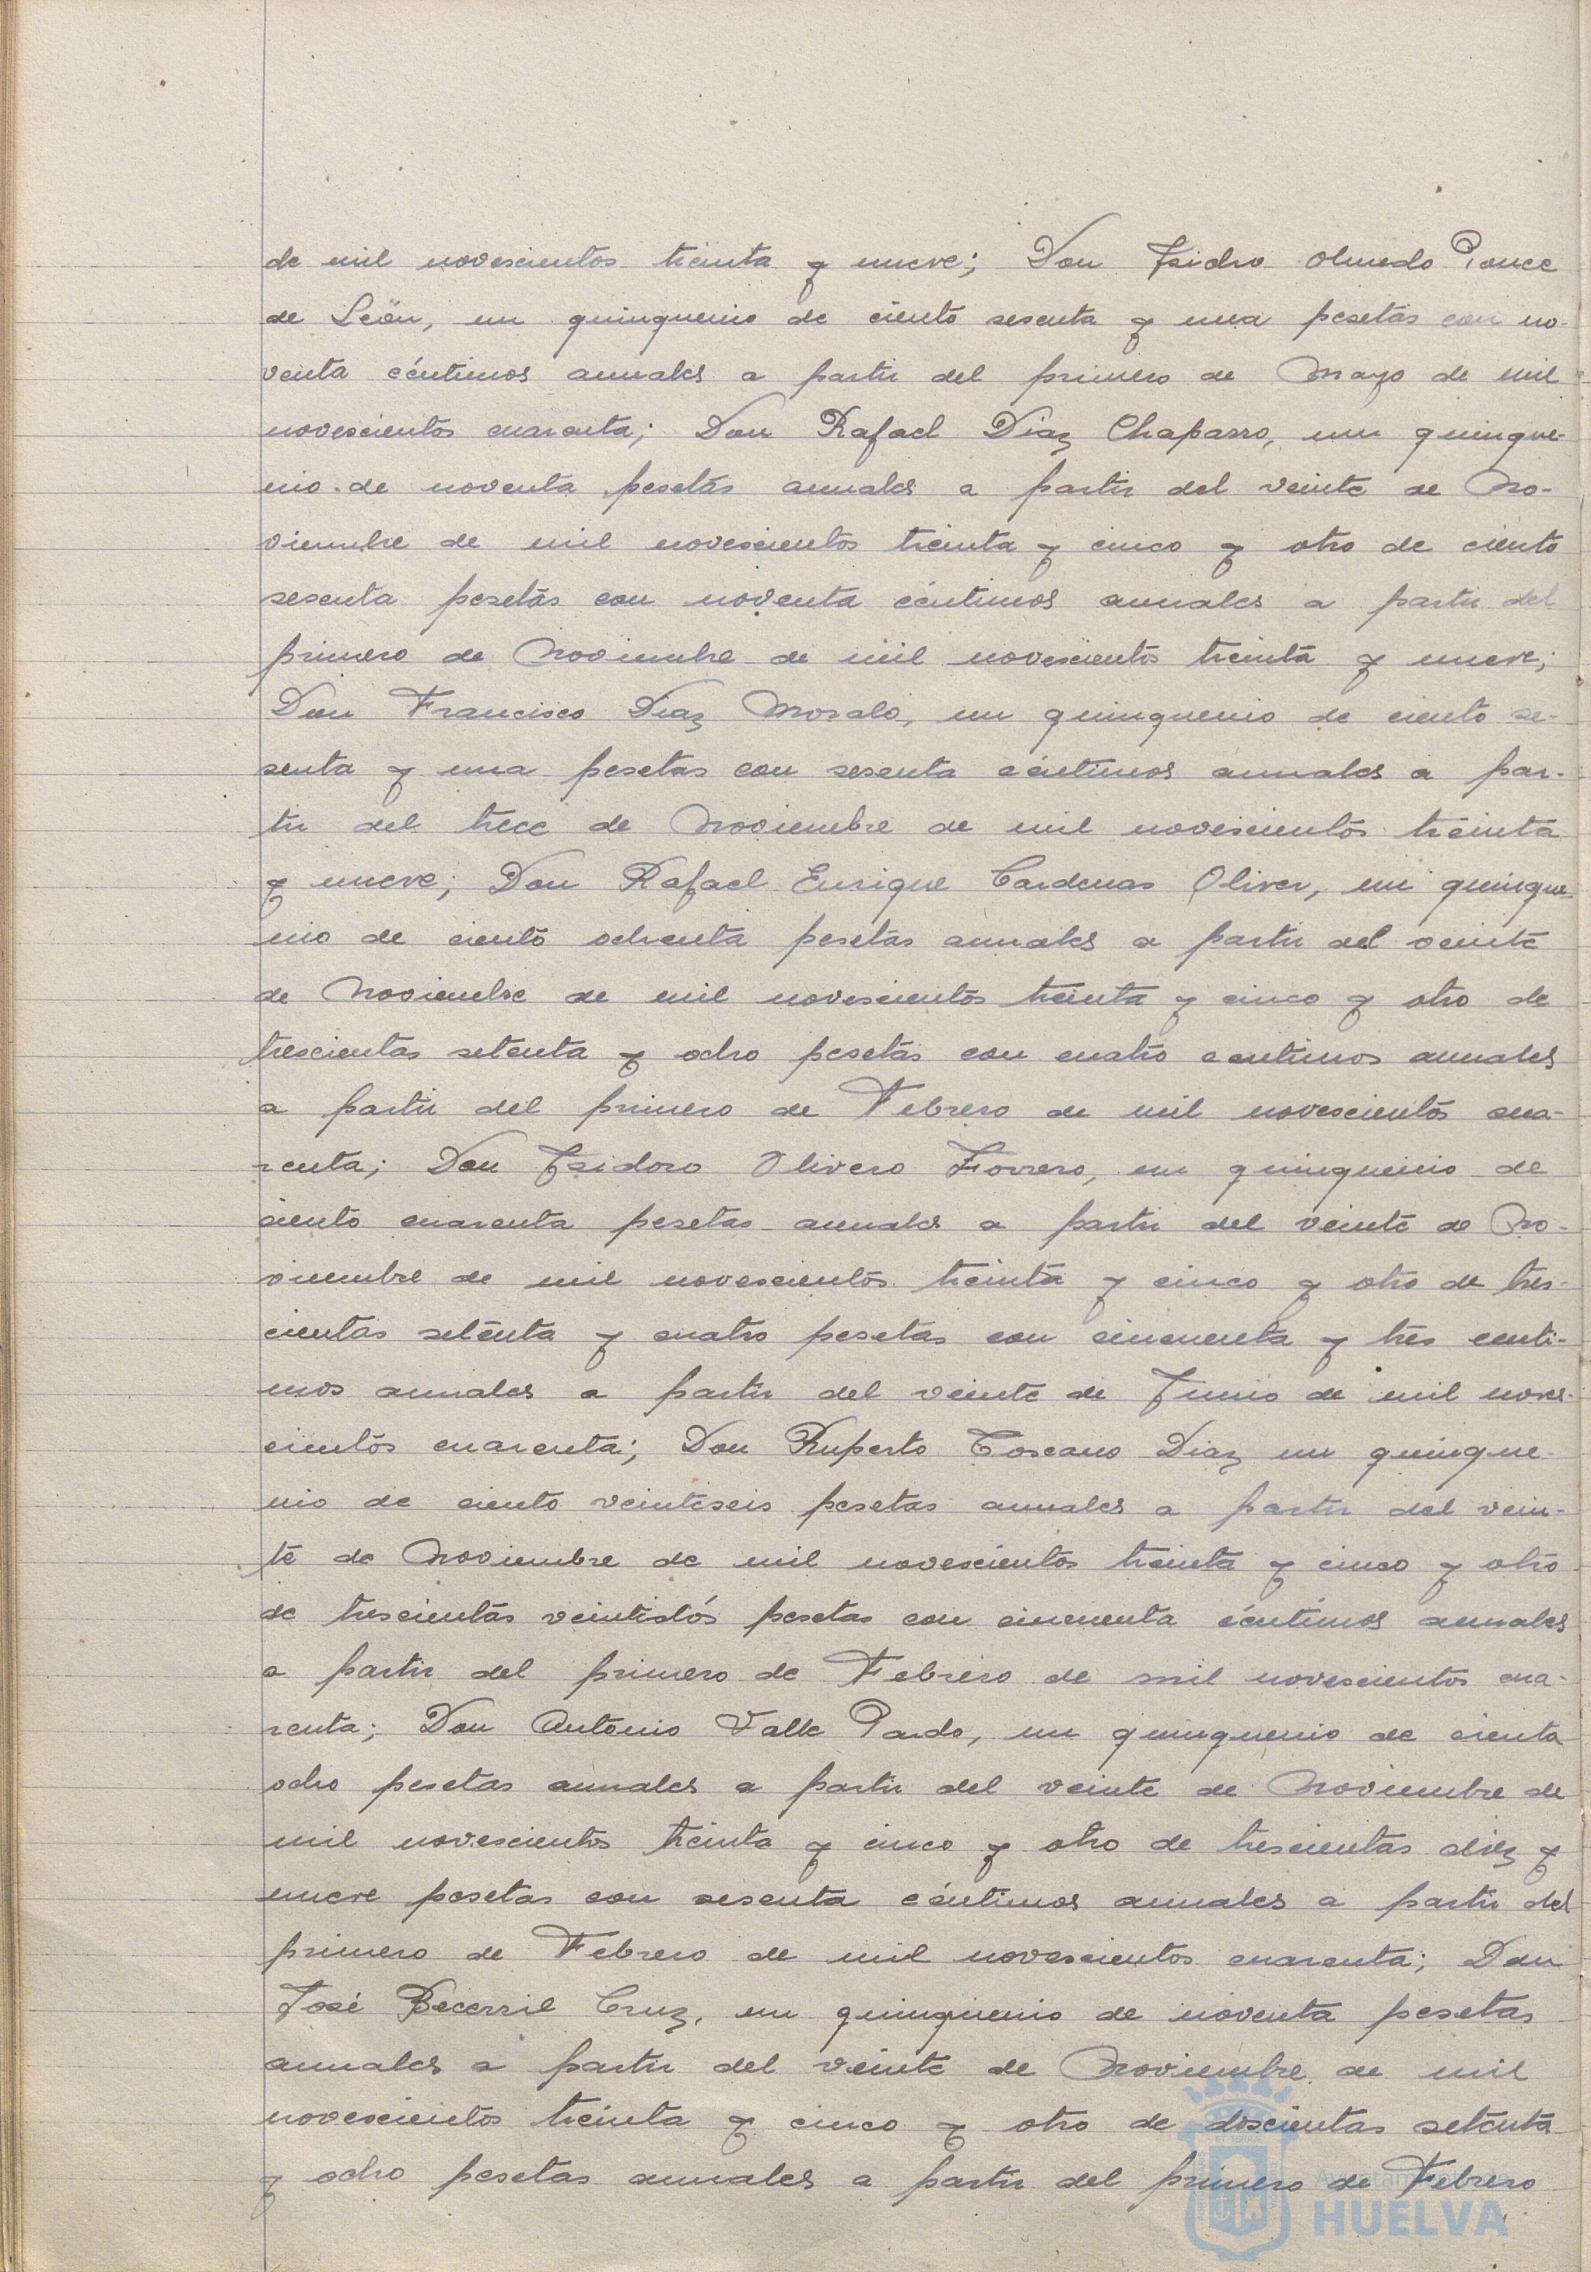 de mil novescientos treinta y nueve; Don Isidro Olmedo Ponce
de León, un quinquenio de ciento sesenta y una pesetas con no-
venta céntimos anuales a partir del primero de Mayo de mil
novescientos cuarenta; Don Rafael Diaz Chaparro, un quinque-
nio de noventa pesetas anuales a partir del veinte de No-
viembre de mil novescientos treinta y cinco y otro de ciento
sesenta pesetas con noventa céntimos anuales a partir del
primero de Noviembre de mil novescientos treinta y nueve;
Don Francisco Diaz Moralo, un quinquenio de ciento se-
senta y una pesetas con sesenta céntimos anuales a par-
tir del trece de Noviembre de mil novescientos treinta
y nueve; Don Rafael Enrique Cardenas Oliver, un quinque-
nio de ciento ochenta pesetas anuales a partir del veinte
de Noviembre de mil novescientos treinta y cinco y otro de
trescientas setenta y ocho pesetas con cuatro centimos anuales
a partir del primero de Febrero de mil novescientos cua-
renta; Don Isidoro Olivero Forrero, un quinquenio de
ciento cuarenta pesetas anuales a partir del veinte de No-
viembre de mil novescientos treinta y cinco y otro de tres-
cientas setenta y cuatro pesetas con cincuenta y tres centi-
mos anuales a partir del veinte de Junio de mil noves-
cientos cuarenta; Don Ruperto Toscano Diaz un quinque-
nio de ciento veintiseis pesetas anuales a partir del vein-
te de Noviembre de mil novescientos treinta y cinco y otro
de trescientas veintidós pesetas con cincuenta céntimos anuales
a partir del primero de Febrero de mil novescientos cua-
renta; Don Antonio Valle Pardo, un quinquenio de ciento
ocho pesetas anuales a partir del veinte de Noviembre de
mil novescientos treinta y cinco y otro de trescientas diez y
nueve pesetas con sesenta céntimos anuales a partir del
primero de Febrero de mil novescientos cuarenta; Don
José Becerril Cruz, un quinquenio de noventa pesetas
anuales a partir del veinte de Noviembre de mil
novescientos treinta y cinco y otro de doscientas setenta
y ocho pesetas anuales a partir del primero de Febrero
HUELVA